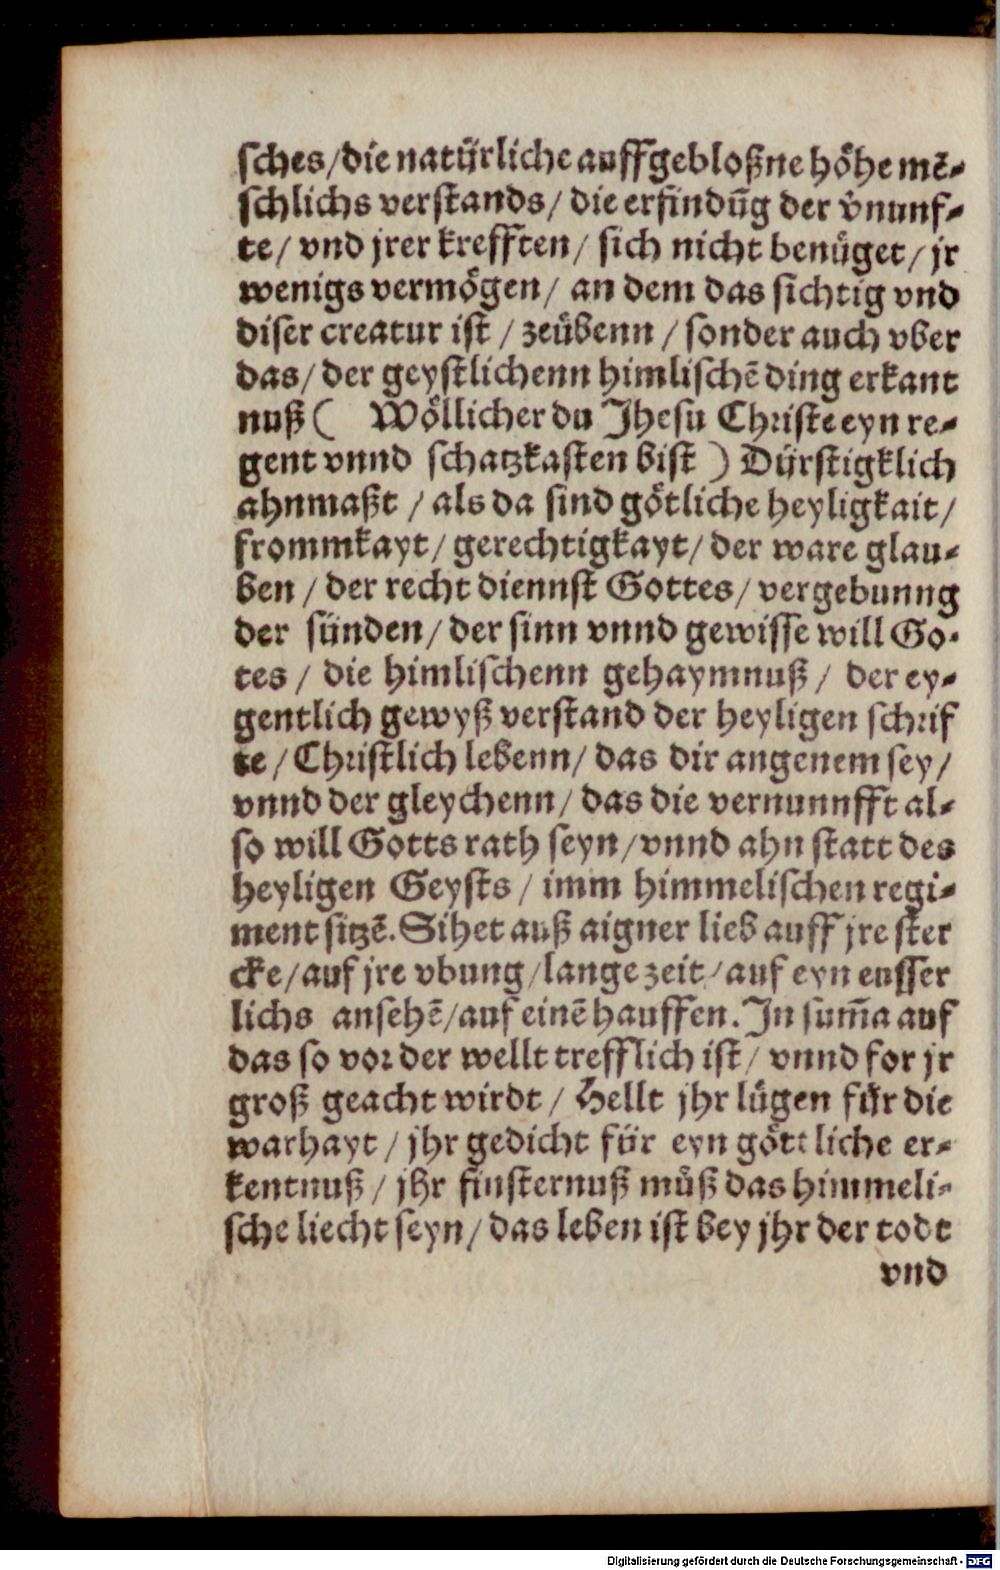 sches/die natürliche auffgebloßne höhe mẽ-
schlichs verstands/ die erfindũg der v̊nunf-
te/ vnd jrer krefften/ sich nicht benüget/ jr
wenigs vermögen/ an dem das sichtig vnd
diser creatur ist / zeübenn / sonder auch vber
das/ der geystlichenn himlischẽ ding erkant
nuß ( Wöllicher du Jhesu Christe eyn re-
gent vnnd schatzkasten bist ) Dürstigklich
ahnmaßt / als da sind götliche heyligkait/
frommkayt/ gerechtigkayt/ der ware glau-
ben / der recht diennst Gottes/ vergebunng
der sünden/ der sinn vnnd gewisse will Go-
tes / die himlischenn gehaymnuß / der ey-
gentlich gewyß verstand der heyligen schrif
te / Christlich lebenn/ das dir angenem sey/
vnnd der gleychenn/ das die vernunnfft al-
so will Gotts rath seyn/vnnd ahn statt des
heyligen Geysts / imm himmelischen regi-
ment sitzẽ. Sihet auß aigner lieb auff jre ster
cke/auf jre vbung/lange zeit/auf eyn eusser
lichs ansehẽ/auf einẽ hauffen. In sum̃a auf
das so vor der wellt trefflich ist/ vnnd for jr
groß geacht wirdt / Hellt jhr lügen für die
warhayt / jhr gedicht für eyn göttliche er-
kentnuß / jhr finsternuß müß das himmeli-
sche liecht seyn/ das leben ist bey jhr der todt
vnd
Digitalisierung gefördert durch die Deutsche Forschungsgemeinschaft - DFG